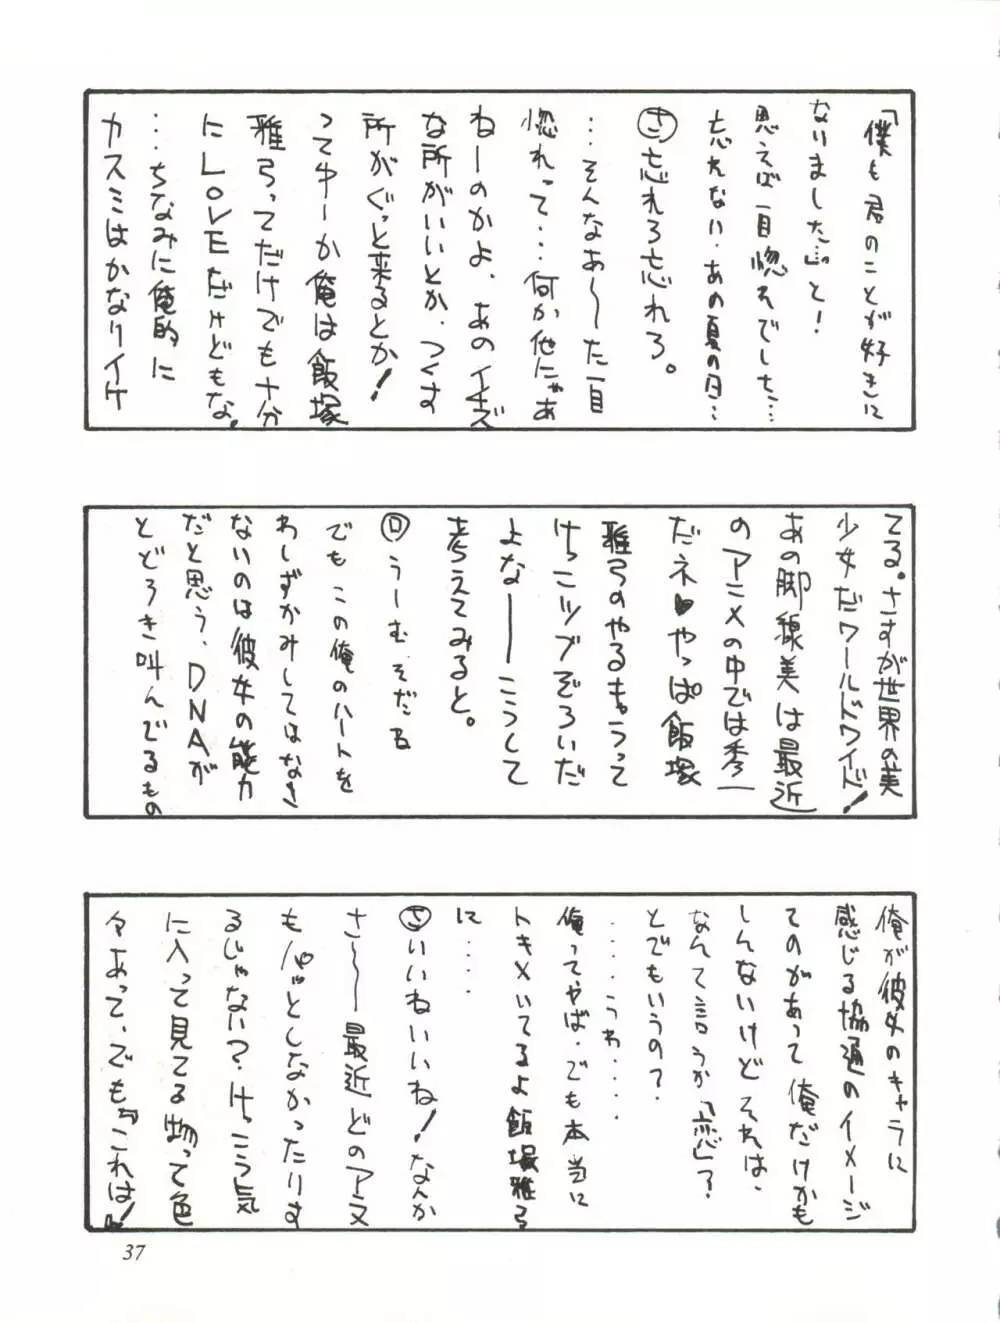 「僕も君のことが好きに
なりました…。」と!
思えば一目惚れでした…
忘れない・あの夏の日…
㋚忘れろ忘れろ。
…そんなあ〜〜た一目
惚れって…何か他にゃあ
ねーのかよ、あのイキズ
な所がいいとか、つくす
所がぐっと来るとか!
って中ーか俺は飯塚
雅弓ってだけでも十分
にLOVEだけどもな。
…ちなみに俺的に
カスミはかなりイケ
てる。さすが世界の美
少女だワールドワイド!
あの脚線美は最近
のアニメの中では秀一
だネ♥やっぱ飯塚
雅弓のやるも。うって
けっこツブぞろいだ
よなーーこうして
考えてみると。
㋺うーむ、そだな
でもこの俺のハートを
わしずかみしてはなさ
ないのは彼女の能力
だと思う、DNAが
とどろき叫んでるもの
俺が彼女のキャラに
感じる協通のイメージ
てのがあって俺だけかも
しんないけどそれは、
なんて言うか「恋」?
とでもいうの?
……うわ……
俺ってやば、でも本当に
トキメいてるよ飯塚雅弓
に……
㋚いいねいいね!なんか
さ〜〜最近どのアニメ
もパッとしなかったりす
るじゃない?けっこう気
に入って見てる物って色
々あって、でも『これは!』
37